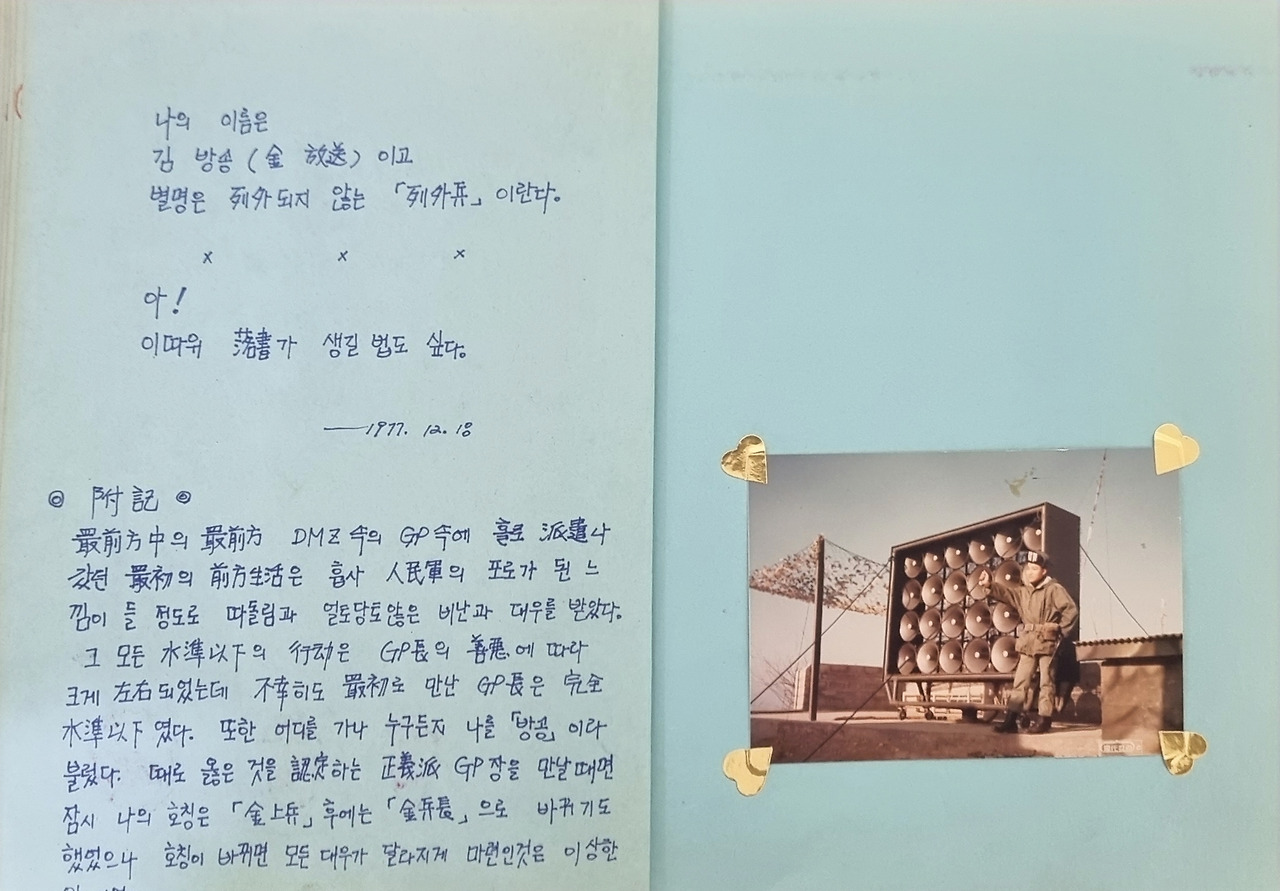 나의 이름은
김 방송 (金 放送) 이고
별명은 列外되지 않는 「列外兵」 이란다.
× × ×
아!
이따위 落書가 생길 법도 싶다.
—1977. 12. 18
◎ 附記 ◎
最前方中의 最前方 DMZ 속의 GP 속에 홀로 派遣나
갔던 最初의 前方生活은 흡사 人民軍의 포로가 된 느
낌이 들 정도로 따돌림과 얼토당토않은 비난과 대우를 받았다.
그 모든 水準以下의 行动은 GP長의 善悪에 따라
크게 左右되었는데 不幸히도 最初로 만난 GP長은 完全
水準以下 였다. 또한 어디를 가나 누구든지 나를 「방공」이라
불렀다. 때로 옳은 것을 認定하는 正義派 GP장을 만날때면
잠시 나의 호칭은 「金上兵」 후에는 「金兵長」으로 바뀌기도
했었으나 호칭이 바뀌면 모든 대우가 달라지게 마련인것은 이상한